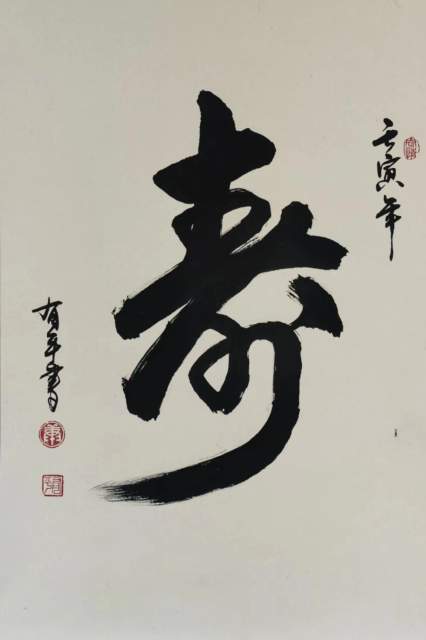 壬寅年
寿
有年書